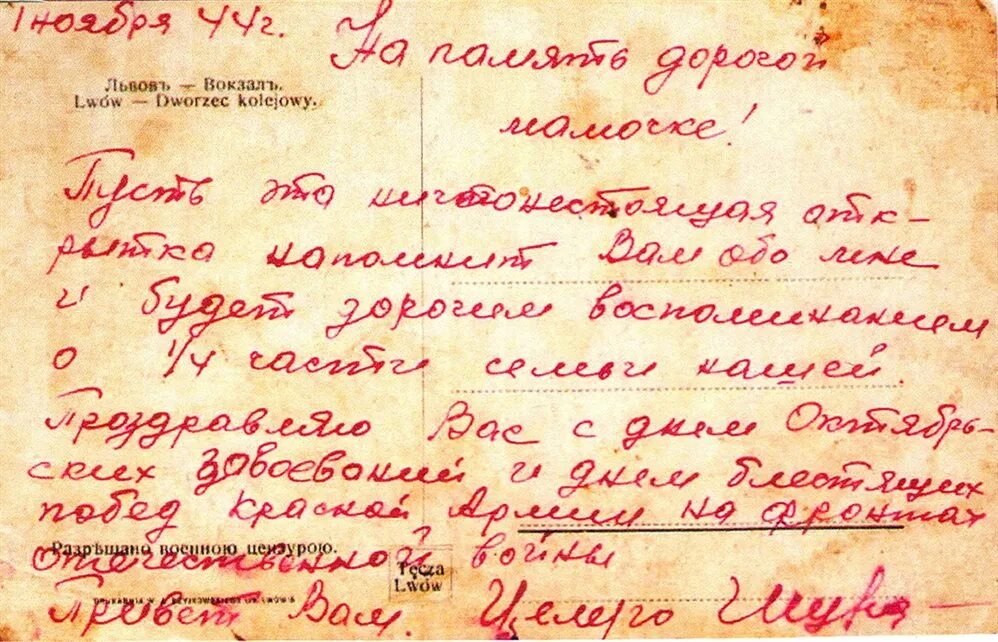 1 ноября 44г.
На память дорогой
Львовъ — Вокзалъ.
Lwów — Dworzec kolejowy.
мамочке!
Пусть эта ничегонестоящая отк-
рытка напомнит Вам обо мне
и будет дорогим воспоминанием
о 1/4 части семьи нашей.
Поздравляю Вас с днем Октябрь-
ских завоеваний и днем блестящих
побед Красной Армии на фронтах
Разрѣшано военною цензурою.
отечественной войны
Tęcza
Lwów
Привет Вам. Целую Шура